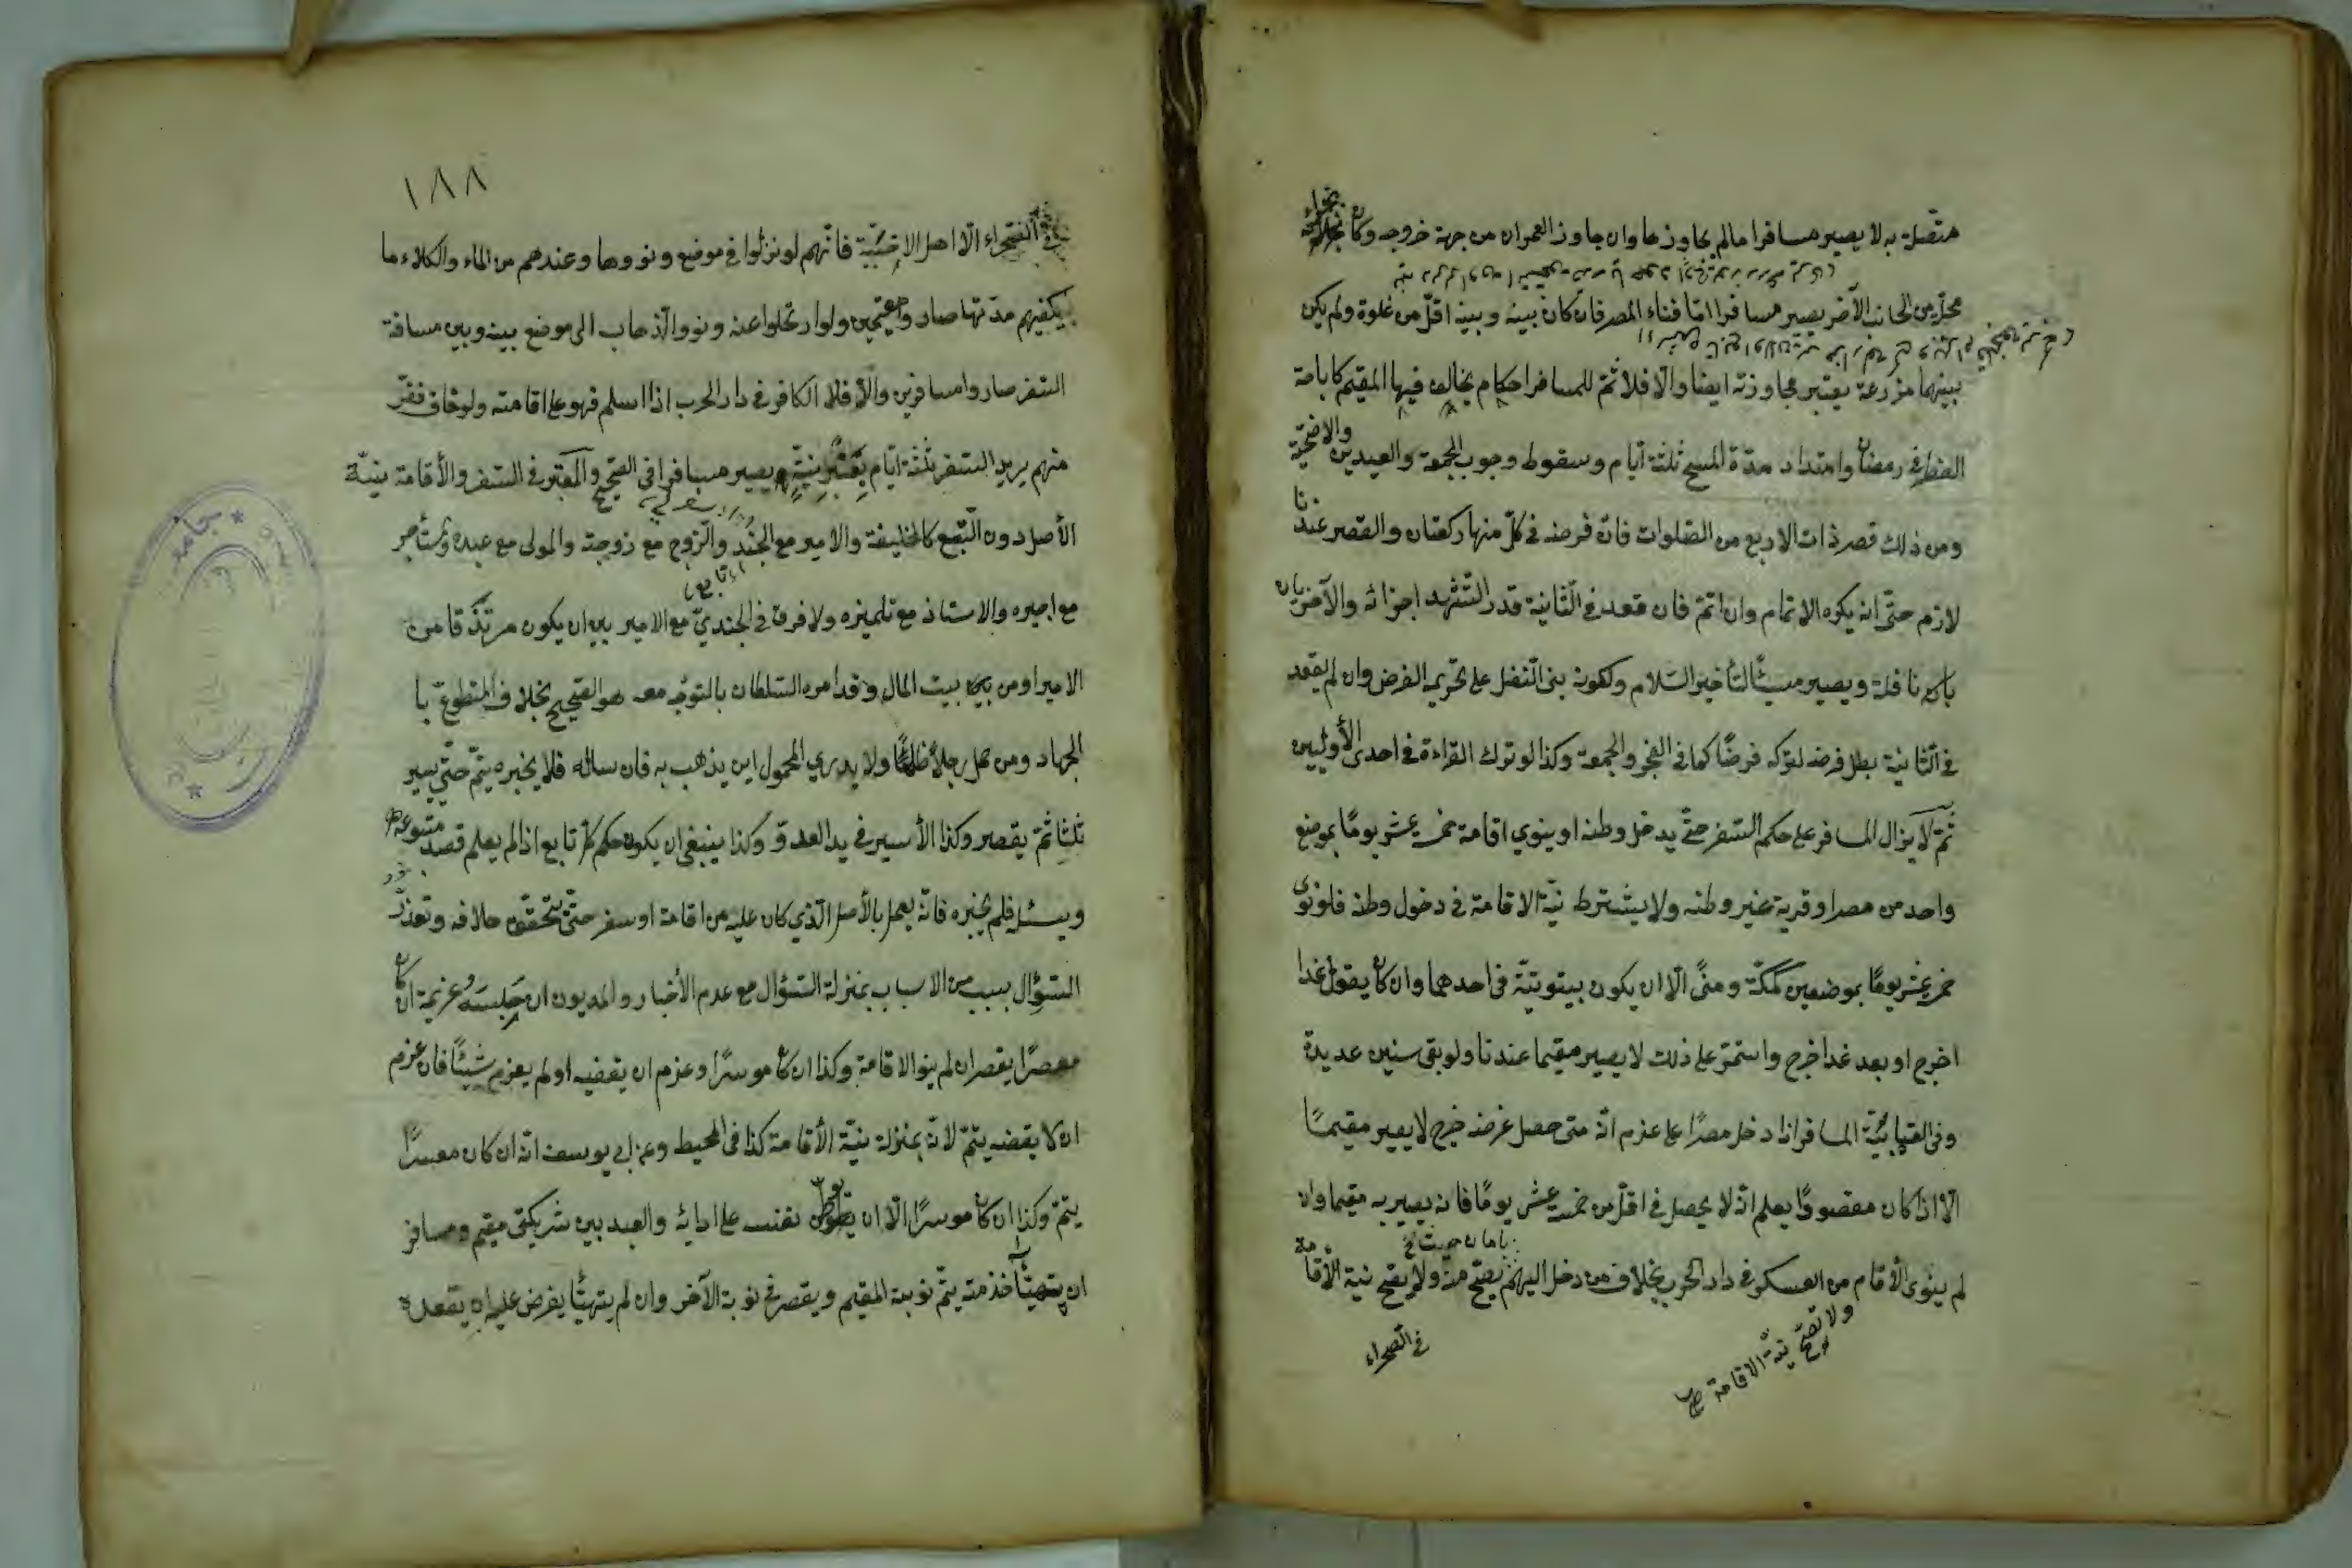 متّصلة به لا يصير مسافرا مالم يجاوزها وان جاوز العمران من جهة خروجه وكان بحذائه
محلّة من الجانب الآخر يصير مسافرا امّا فناء المصر فان كان بينه وبينه اقلّ من غلوة ولم يكن
بينهما مزرعة يعتبر مجاوزته ايضا والّا فلا ثمّ للمسافر احكام يخالف فيها المقيم كاباحة
الفطر في رمضان وامتداد مدّة المسح ثلثة ايّام وسقوط وجوب الجمعة والعيدين والاضحيّة
ومن ذلك قصر ذات الاربع من الصّلوات فانّ فرضه في كلّ منها ركعتان والقصر عندنا
لازم حتّى انه يكره الاتمام وان اتمّ فان قعد في الثّانية قدر التّشهد اجزائه والآخريان
نافلة ويصير مسيئًا لتأخير السّلام ولكونه بنى النّفل على تحريمه الفرض وان لم يقعد
في الثّانية بطل فرضه لتركه فرضًا كما في الفجر والجمعة وكذا لو ترك القراءة في احدى الأوليين
ثمّ لا يزال المسافر على حكم السّفر حتّى يدخل وطنه او ينوي اقامة خمسة عشر يومًا بموضع
واحد من مصر او قرية غير وطنه ولا يشترط نيّة الاقامة في دخول وطنه فلو نوى
خمسة عشر يومًا بموضعين كمكّة ومنًى الّا ان يكون بيتوتته في احدهما وان كان يقول غدا
اخرج او بعد غد اخرج واستمرّ على ذلك لا يصير مقيما عندنا ولو بقى سنين عديدة
وفي العتابيّة المسافر اذا دخل مصرًا على عزم انّه متى حصل غرضه خرج لا يصير مقيمًا
الّا اذا كان مقصودًا يعلم انّه لا يحصل في اقلّ من خمسة عشر يومًا فانه يصير به مقيما وان
لم ينوى الأقام من العسكر في دار الحرب بخلاف من دخل اليهم يصحّ منه ولا يصحّ نية الأقامة
ولا تصحّ نيّة الاقامة صح
في الصّحراء
١٨٨
الصّحراء الّا اهل الاخبيّة فانّهم لو نزلوا في موضع ونووها وعندهم من الماء والكلاء ما
يكفيهم مدّتها صاروا مقيمين ولو ارتحلوا عنه ونووا الذّهاب الى موضع بينه وبين مسافة
السّفر صاروا مسافرين والّا فلا الكافر في دار الحرب اذا اسلم فهو على اقامته ولو خاف ففرّ
منهم يريد السّفر ثلثة ايّام يعتبر نيّته ويصير مسافرا في الصّحيح والمعتبر في السّفر والأقامة نيّة
الأصل دون التّبع كالخليفة والامير مع الجند والزّوج مع زوجته والمولى مع عبده ومستأجر
مع اجيره والاستاذ مع تلميذه ولا فرق في الجنديّ مع الامير بين ان يكون مرتزقا من
الامير او من بيت المال وقد امره السّلطان بالتوجّه معه هو الصّحيح بخلاف المتطوّع با
لجهاد ومن حمل رجلاً ظلمًا ولا يدري المحمول اين يذهب به فان ساله فلا يخبره يتمّ حتّى يسير
ثلثا ثمّ يقصر وكذا الأسير في يد العدوّ وكذا ينبغي ان يكون حكم كلّ تابع اذا لم يعلم قصد متبوعه
ويسئل فلم يخبره فانّه يعمل بالأصل الّذي كان عليه من اقامة او سفر حتّى يتحقّق خلافه وتعذّر
السّؤال بسبب من الاسباب بمنزلة السّؤال مع عدم الأخبار والمديون ان حبسه غريمه ان كان
معسرًا يقصر ان لم ينو الاقامة وكذا ان كان موسرًا وعزم ان يقضيه او لم يعزم شيئًا فان عزم
ان لا يقضيه يتمّ لانّه بمنزلة نيّة الأقامة كذا في المحيط وعن ابي يوسف انّه ان كان معسرًا
يتمّ وكذا ان كان موسرًا الّا ان يوطّن نفسه على ادائه والعبد بين شريكين مقيم ومسافر
ان يتهيّأ خدمته يتمّ نوبة المقيم ويقصر في نوبة الآخر وان لم يتهيّأ يفرض عليه ان يقعد